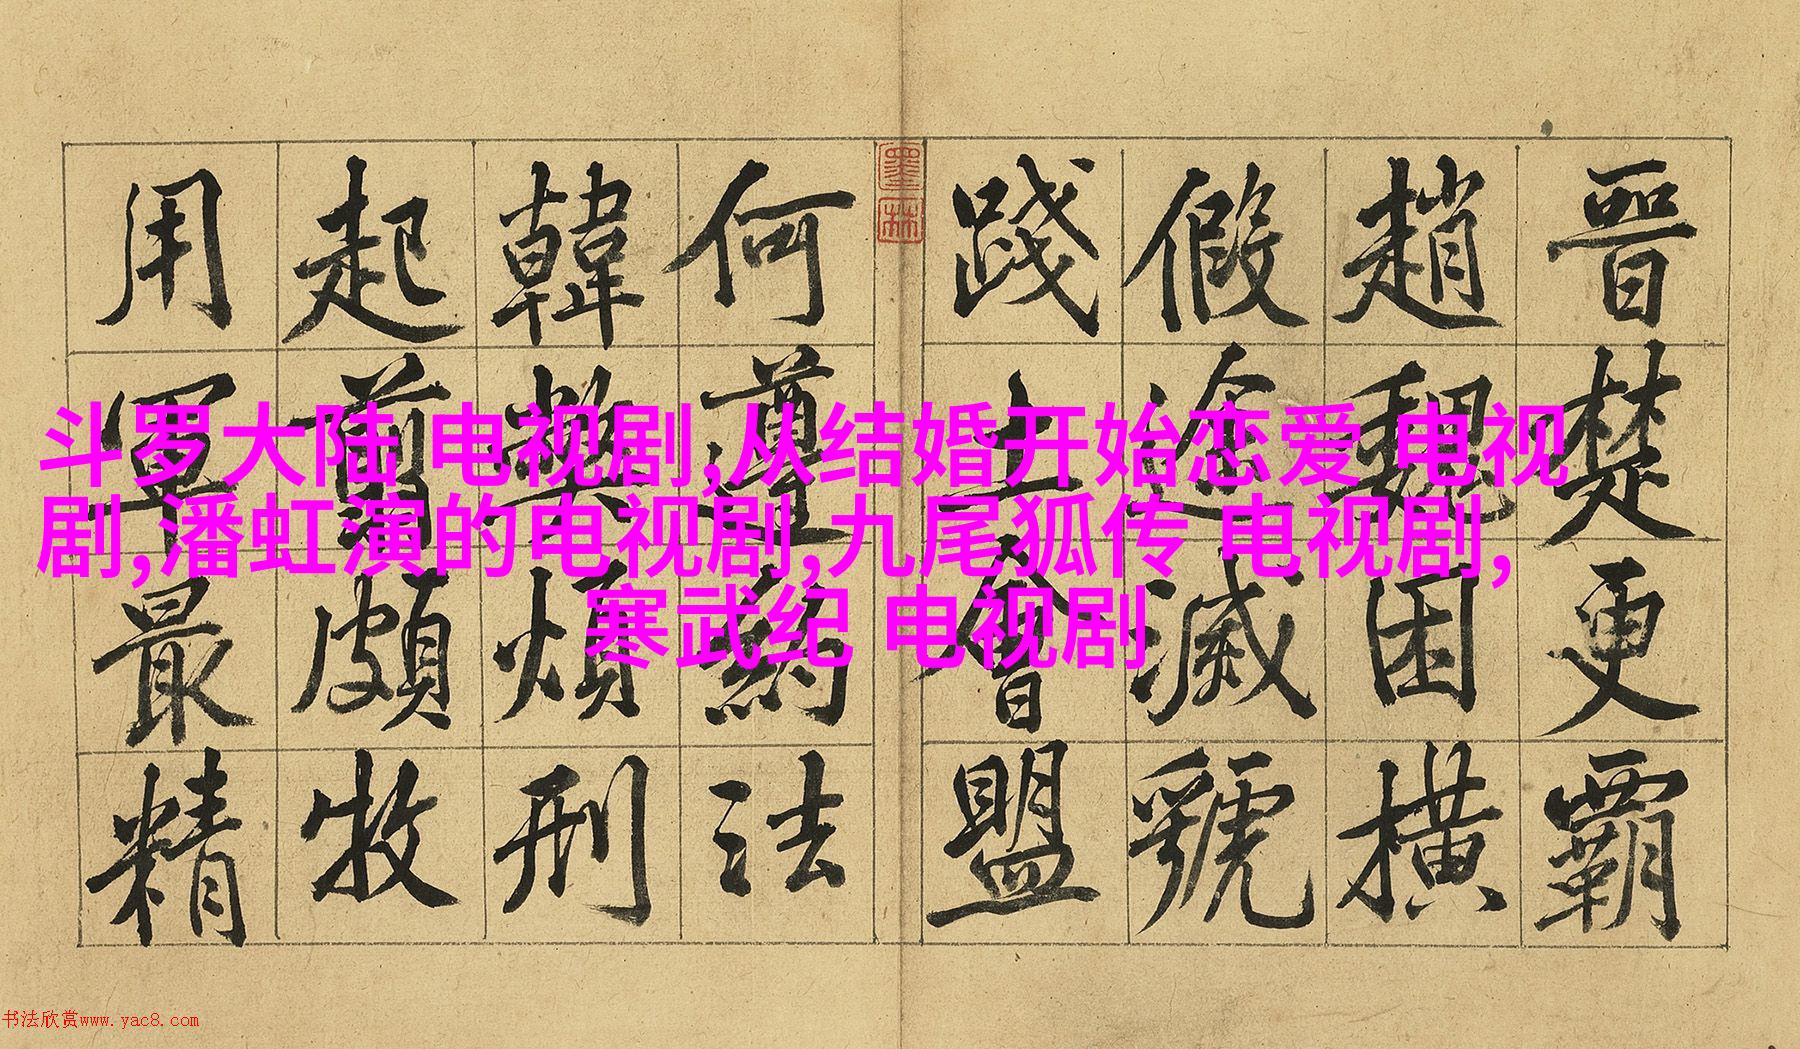 晉楚更霸
趙魏困橫
假途滅虢
踐土會盟
何遵約法
韓弊煩刑
起翦頗牧
用軍最精
墨林
斗罗大陆 电视剧,从结婚开始恋爱 电视
剧,潘虹演的电视剧,九尾狐传 电视剧,
寒武纪 电视剧
书法欣赏www.yac8.com